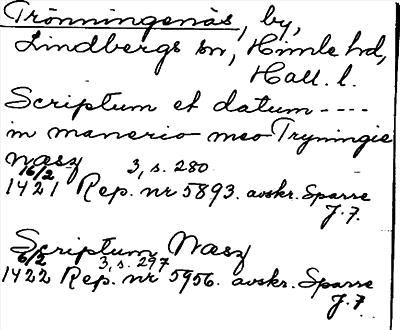 Trönningenäs, by,
Lindbergs sn, Himle hd,
Hall. l.
Scriptum et datum ----
in manerio meo Tryningie
nasz
16/2 3, s. 280
1421 Rep. nr 5893. avskr. Sparre
J. 7.
Scriptum Nasz
6/2 3, s. 297
1422 Rep. nr 5956. avskr. Sparre
J. 7